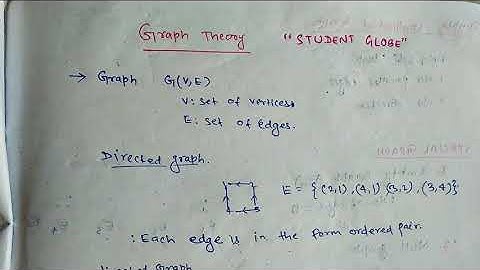 Graph Theory "STUDENT GLOBE"
→ Graph G(V,E)
V: set of vertices.
E: set of edges.
Directed graph.
E = {(2,1), (4,1) (3,2), (3,4)}
: Each edge is in the form ordered pair.